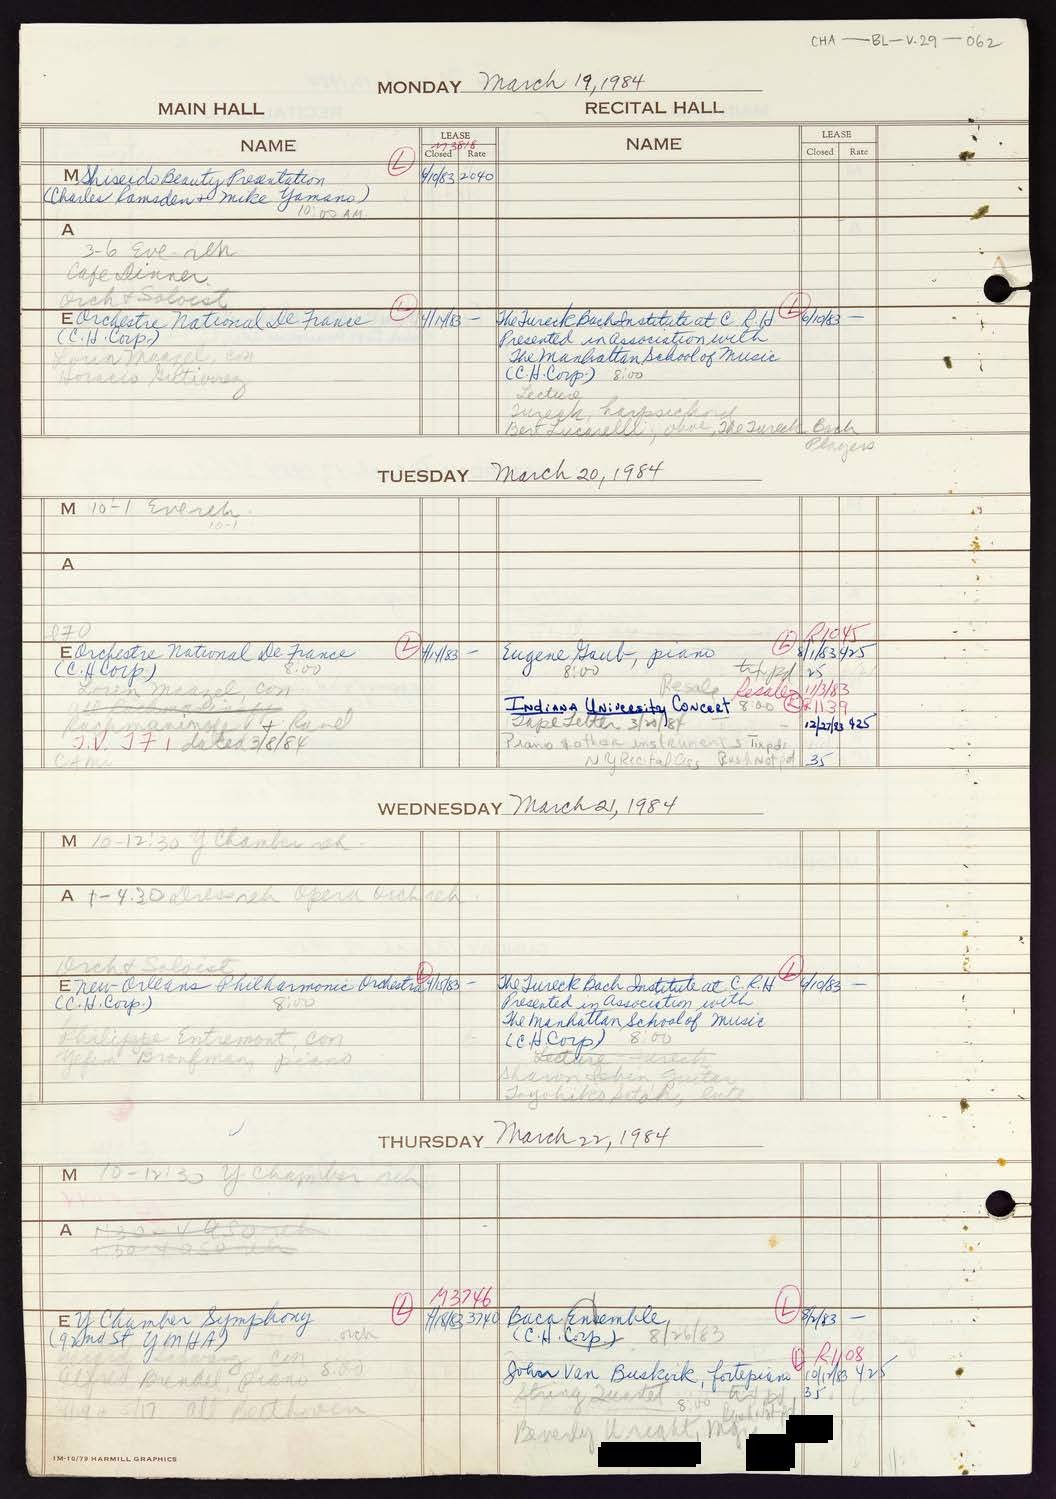 CHA — BL — V.29 — 062
MONDAY March 19, 1984
MAIN HALL RECITAL HALL
NAME LEASE Closed Rate NAME LEASE Closed Rate
M3818
M Shiseido Beauty Presentation L 4/10/83 2040
(Charles Ramsden + Mike Yamano)
10:00 AM
A
3-6 Eve reh
Cafe Dinner
Orch & Soloist
E Orchestre National De France L 4/14/83 —
(C.H. Corp.)
Lorin Maazel, con
Horacio Gutierrez
The Tureck Bach Institute at C.R.H L 6/10/83 —
Presented in association with
The Manhattan School of Music
(C.H. Corp.) 8:00
Lecture
Tureck, harpsichord
Bert Lucarelli, oboe, The Tureck Bach
Players
TUESDAY March 20, 1984
M 10-1 Eve reh
10-1
A
E Orchestre National De France L 4/14/83 —
(C.H Corp) 8:00
Lorin Maazel, con
Rachmaninoff + Ravel
T.V. TF1 dated 3/8/84
CAMI
R1045
Eugene Gaub, piano L 8/1/83 425
8:00 txt pd 25
Resale Resale 11/3/83
Indiana University Concert 8:00 L R1139
Tape Letter 3/20/84 12/27/83 425
Piano & other instruments Tix pd
NY Recital Ass Push Not pd 35
WEDNESDAY March 21, 1984
M 10-12:30 Y Chamber reh
A 1-4:30 Dress reh Opera Orch reh
Orch & Soloist
E New Orleans Philharmonic Orchestra L 4/15/83 —
(C.H. Corp.) 8:00
Philippe Entremont, con
Yefim Bronfman, piano
The Tureck Bach Institute at C.R.H L 6/10/83 —
Presented in Association with
The Manhattan School of Music
(C.H. Corp) 8:00
Lecture Tureck
Sharon Isbin guitar
Toyohiko Satoh, lute
THURSDAY March 22, 1984
M 10-12:30 Y Chamber reh
A 1:30-4 ASO reh
1:30-4 ASO reh
M3746
E Y Chamber Symphony L 4/18/83 3740
(92nd St YMHA) orch
Alfred Brendel, piano 8:00
All Beethoven
Baca Ensemble, L 8/2/83 —
(C.H. Corp.) 8/26/83
L R1108
John Van Buskirk, fortepiano 10/12/83 425
String Quartet 8:00 txt pd 35
Push Not pd
Beverly Wright, Mgr
1M-10/79 HARMILL GRAPHICS